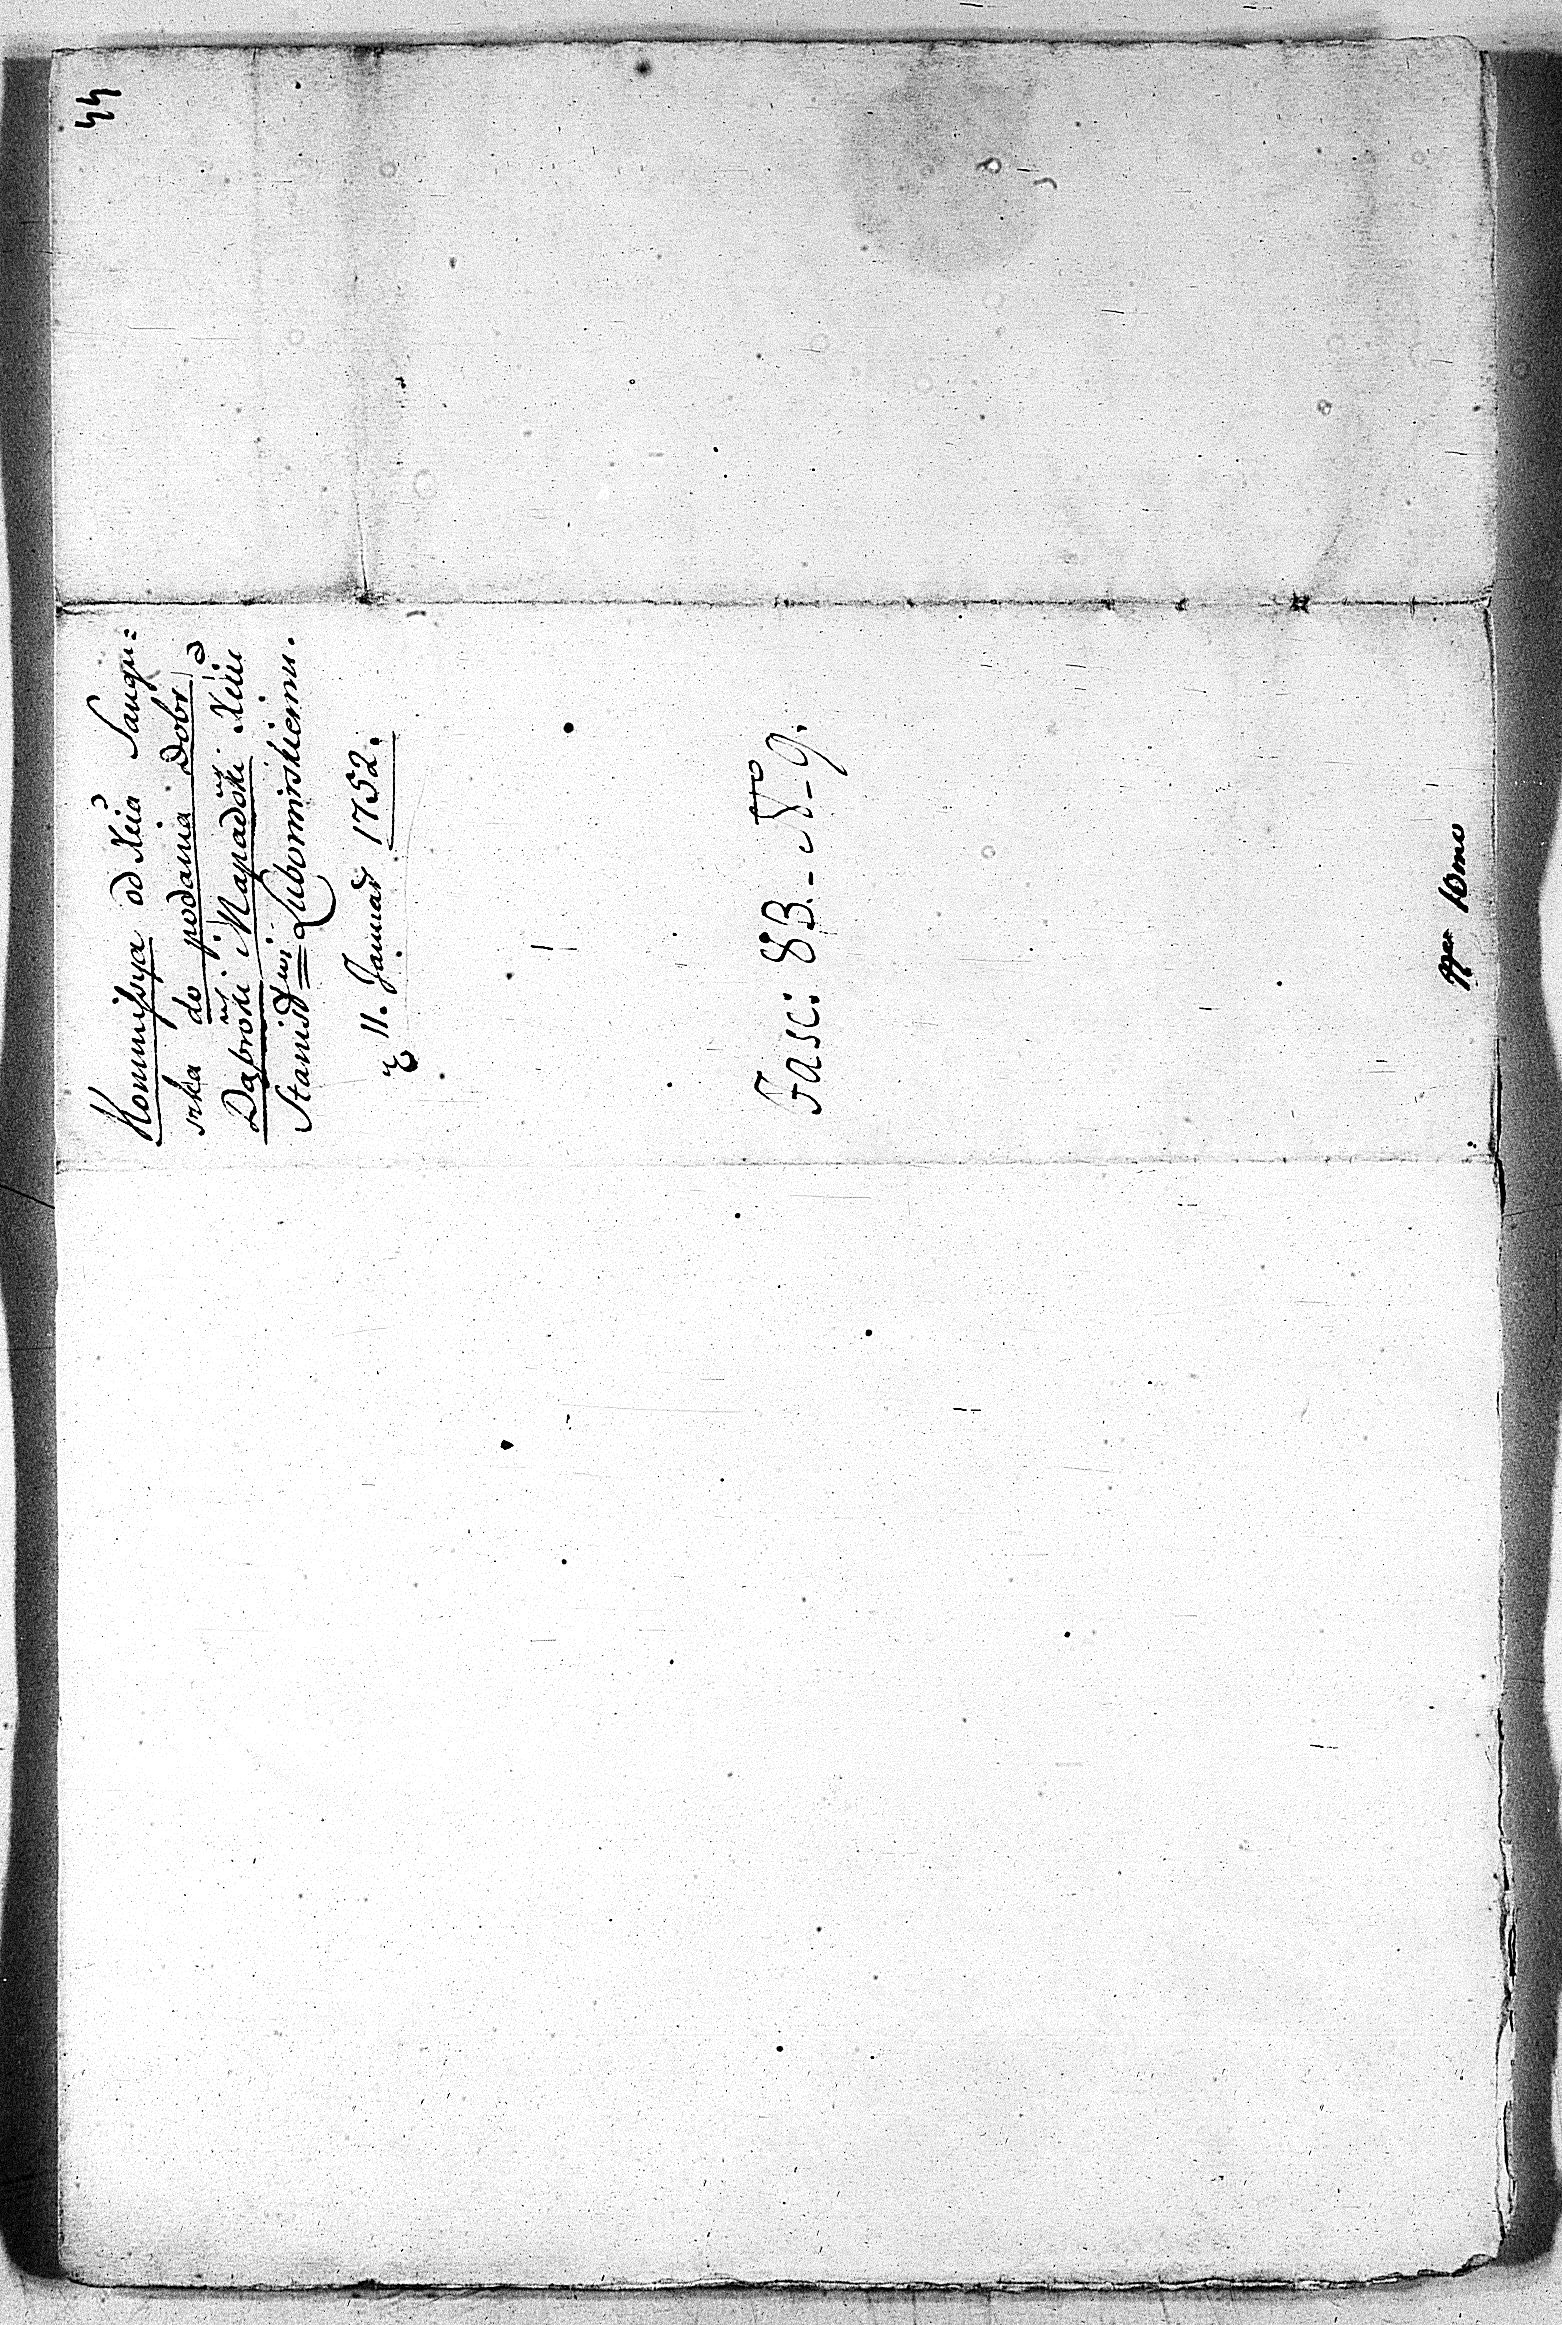 44
Kommissya od Xcia Sangu=
szka do podania Dobr
Dąbrowi. Napadowi Xciu
Stanisłwi Lubomirskiemu.
11. Januar 1752.
Fasc: 83. – Nro – 9.
10mo